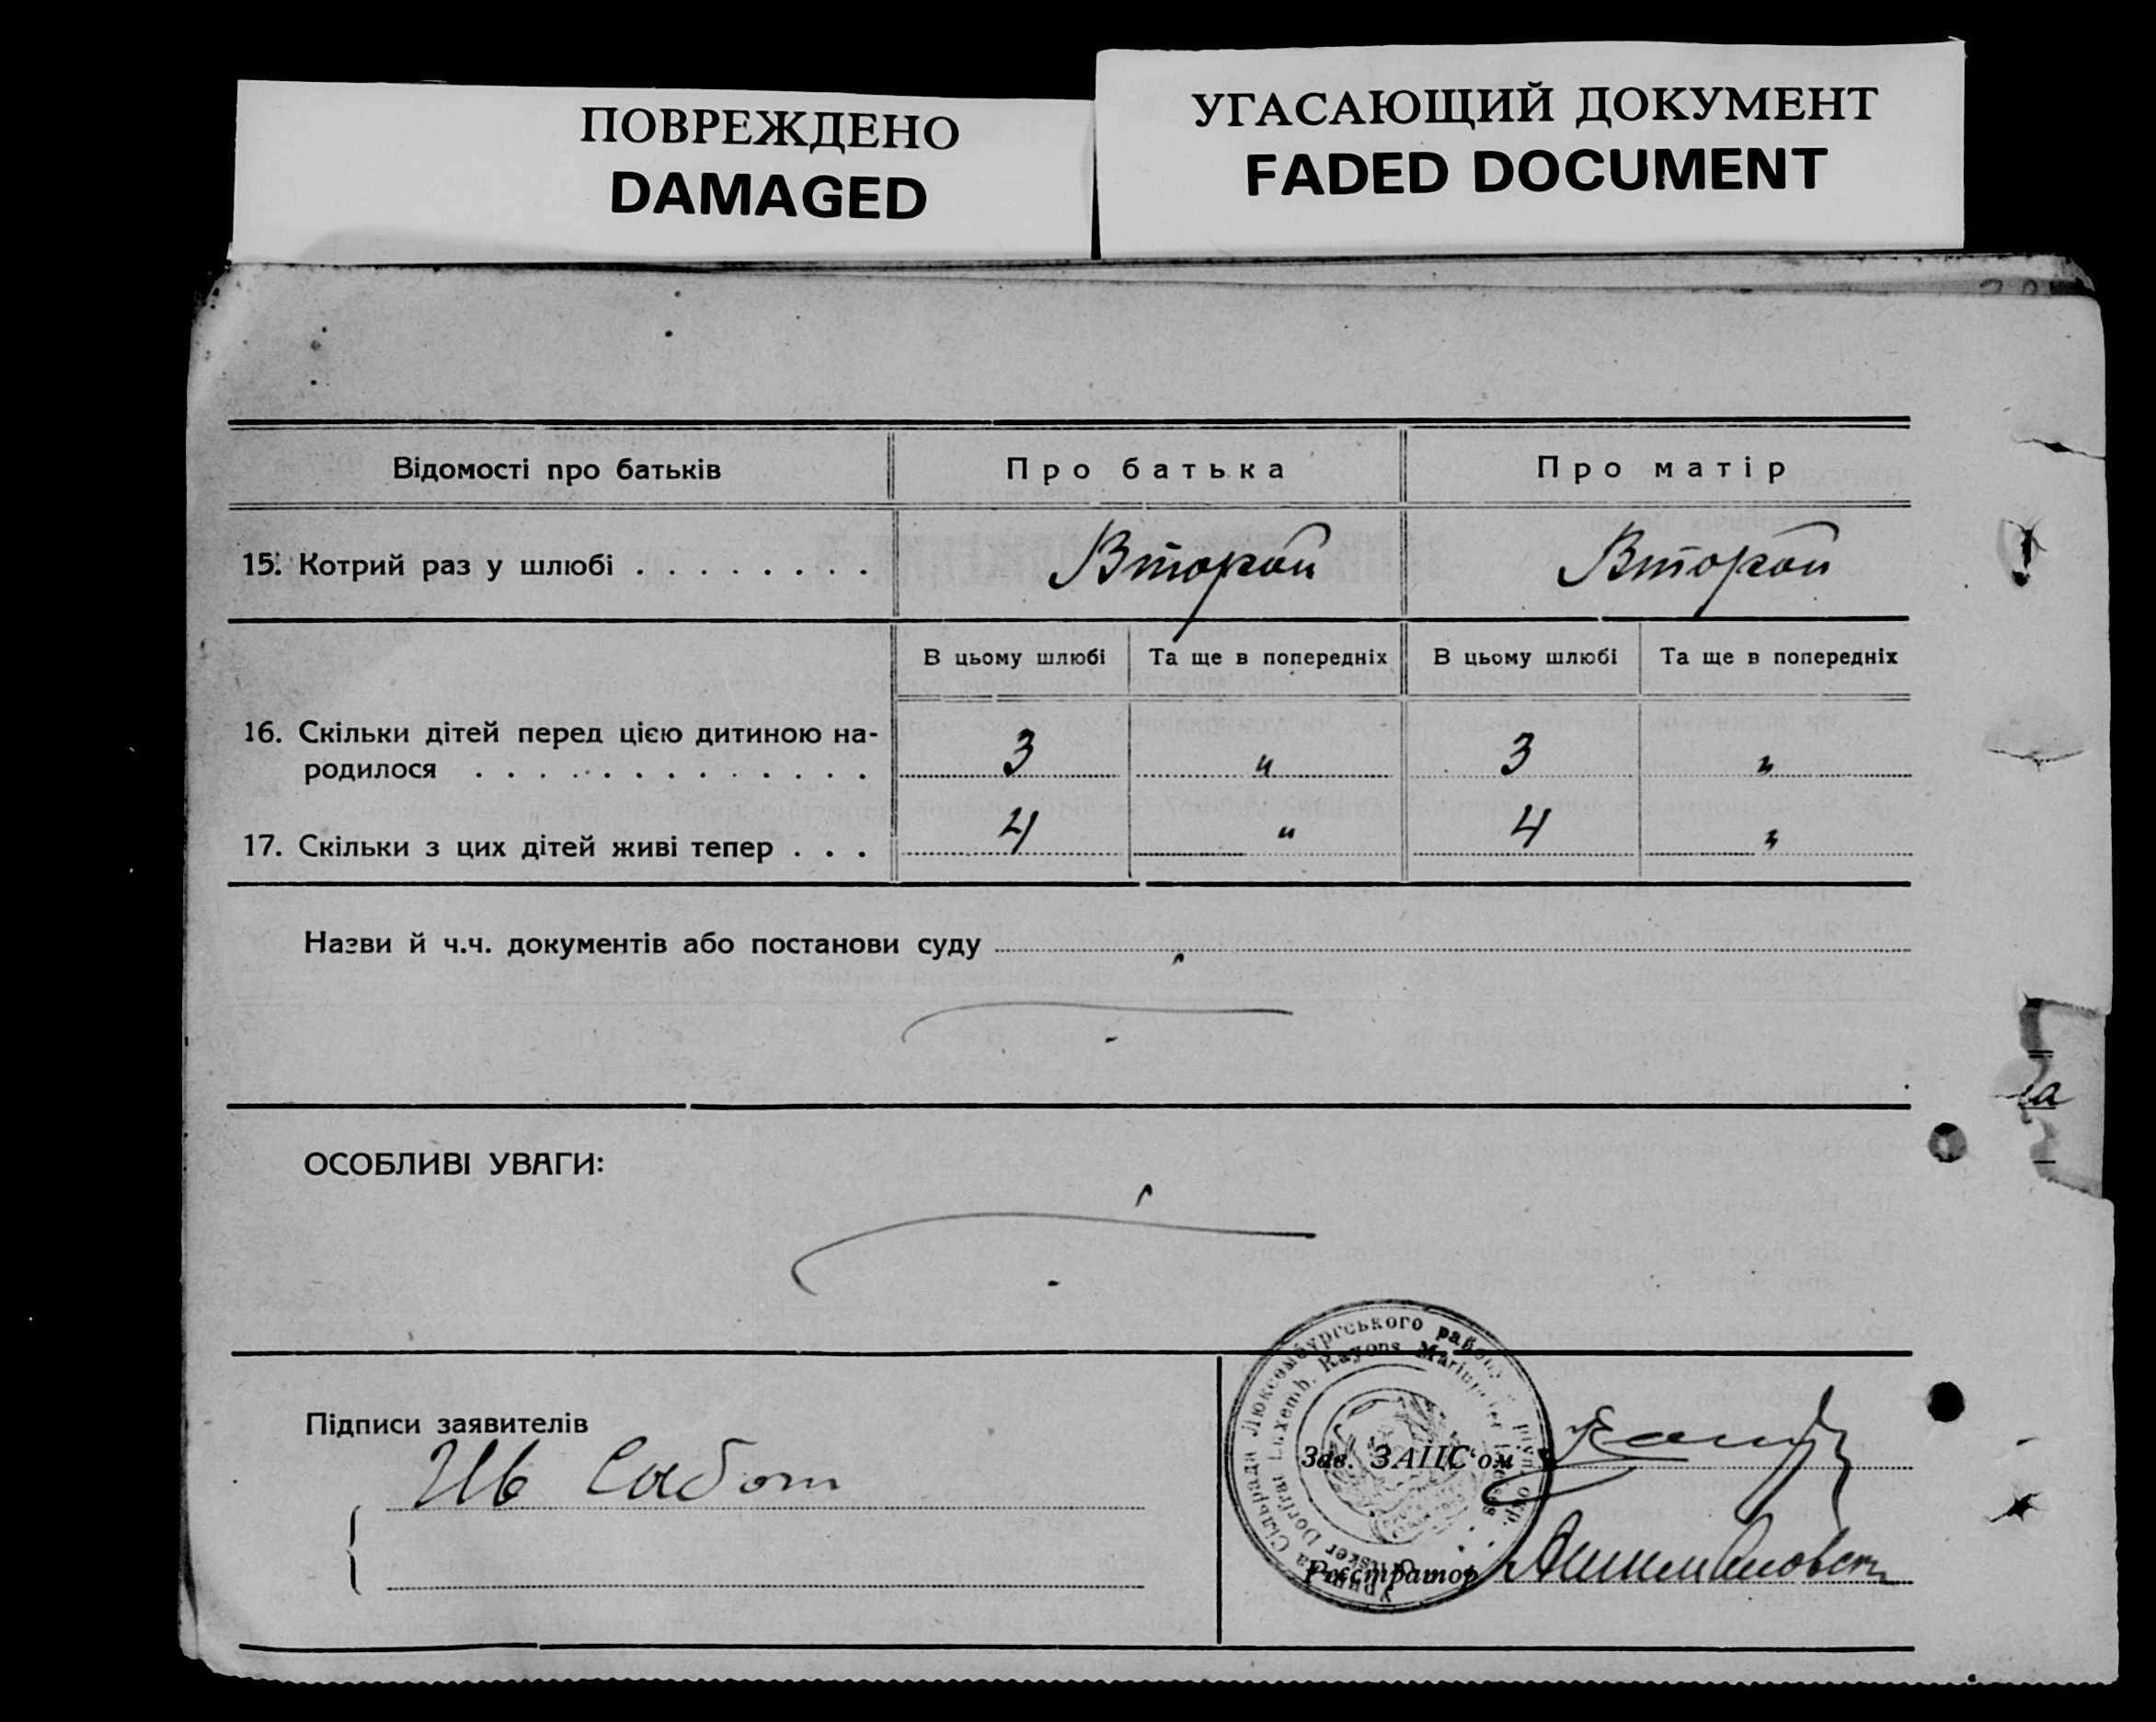 ПОВРЕЖДЕНО
DAMAGED
УГАСАЮЩИЙ ДОКУМЕНТ
FADED DOCUMENT
Відомості про батьків
Про батька
Про матір
15. Котрий раз у шлюбі . . . . . . . .
Второй
Второй
В цьому шлюбі
Та ще в попередніх
В цьому шлюбі
Та ще в попередніх
16. Скільки дітей перед цією дитиною на-
родилося . . . . . . . . . . . . . .
3
"
3
"
17. Скільки з цих дітей живі тепер . . .
4
"
4
"
Назви й ч.ч. документів або постанови суду
ОСОБЛИВІ УВАГИ:
Підписи заявителів
Ив Сабот
Люксембурґського району
Luxemb. Rayons
Зав. ЗАЦС'ом
Реєстратор